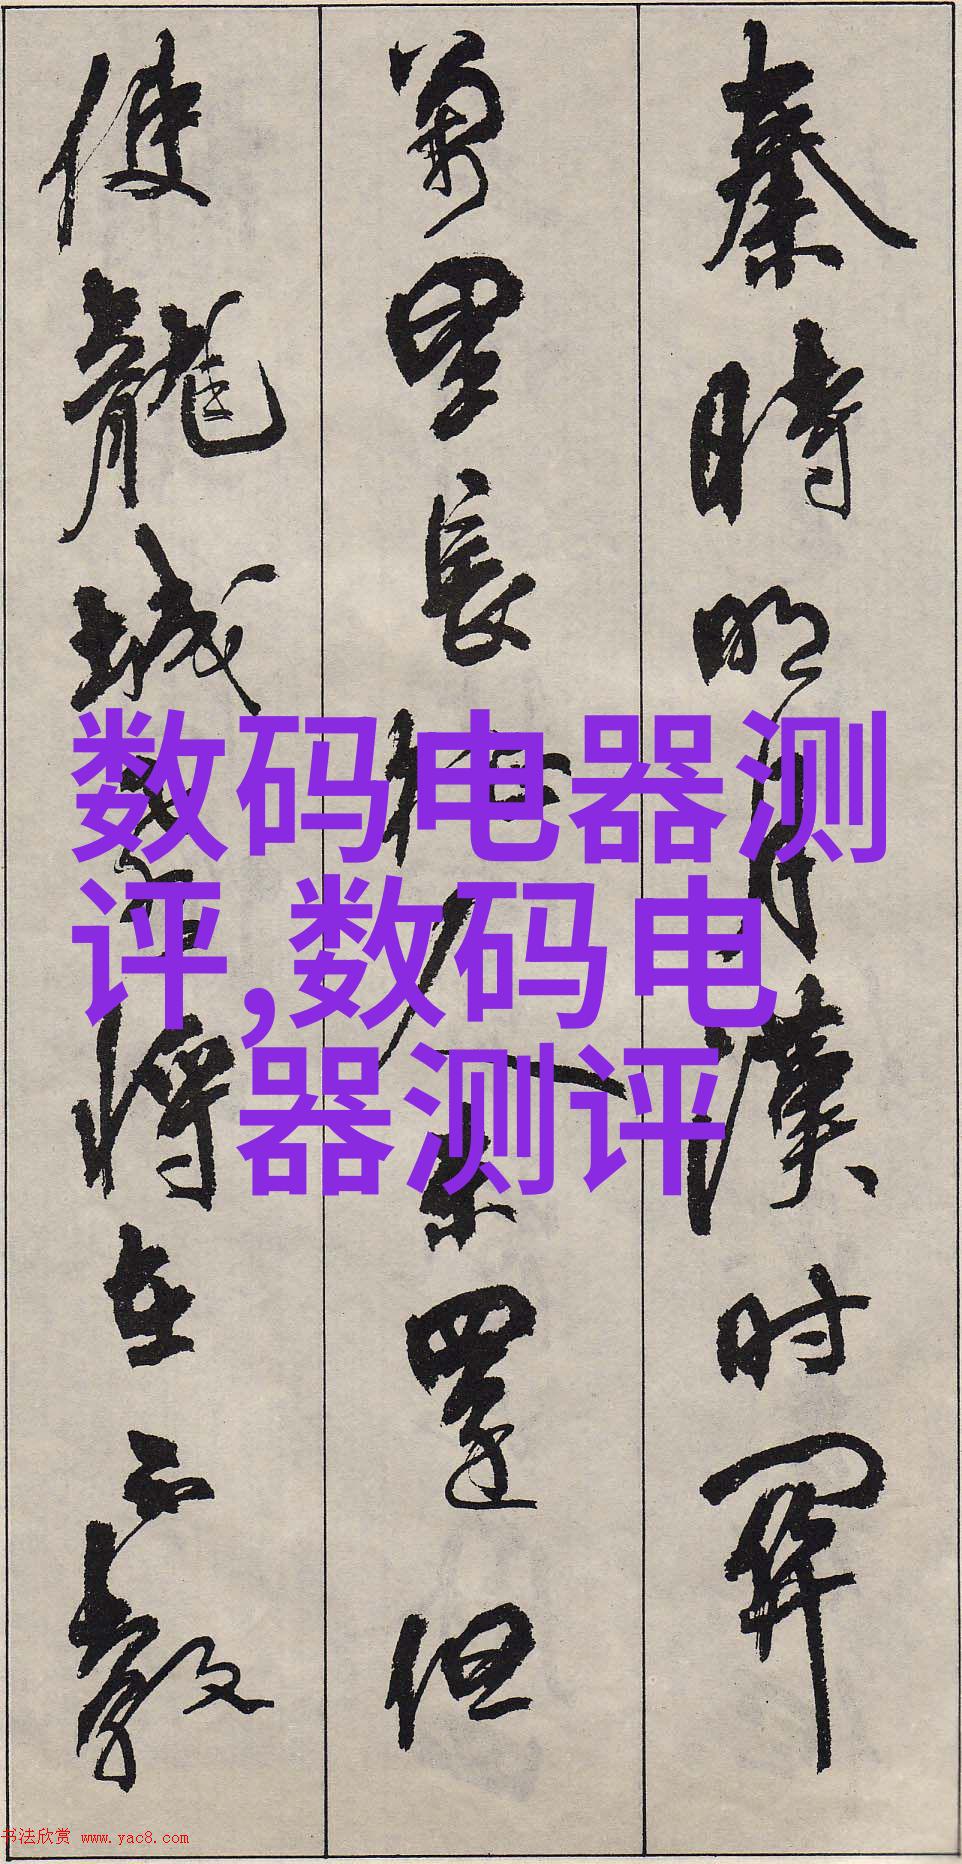 秦時明月漢时關
萬里長征人未還但
使龍城飛將在不教
数码电器测
评,数码电
器测评
书法欣赏 www.yac8.com